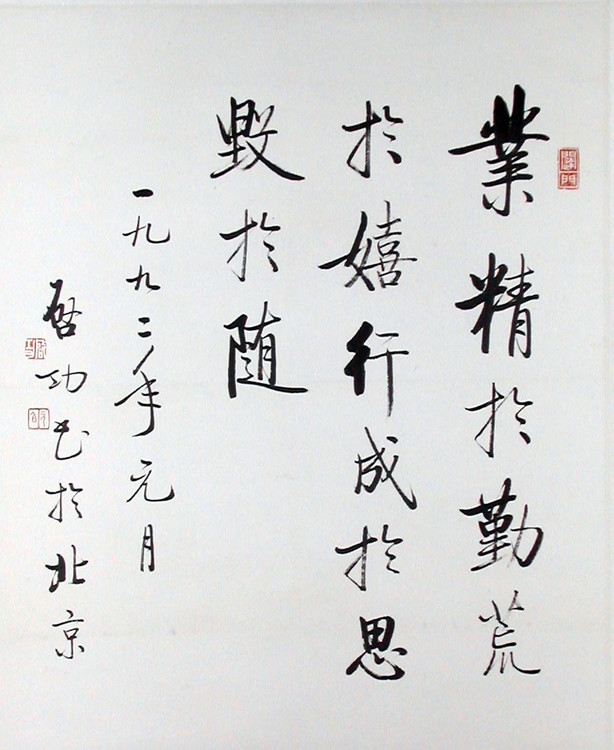 業精於勤荒
於嬉行成於思
毁於随
一九九二年元月
启功书於北京